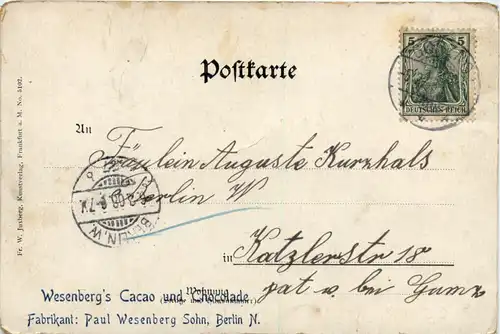 5 5
DEUTSCHES REICH
Postkarte
An
Fräulein Auguste Kurzhals
Berlin W
BERLIN, W.
in Katzlerstr 18
Wohnung
(Straße und Hausnummer)
pat. v. bei Gumz
Wesenberg's Cacao und Chocolade
Fabrikant: Paul Wesenberg Sohn, Berlin N.
Fr. W. Juxberg, Kunstverlag, Frankfurt a. M. No. 5102.